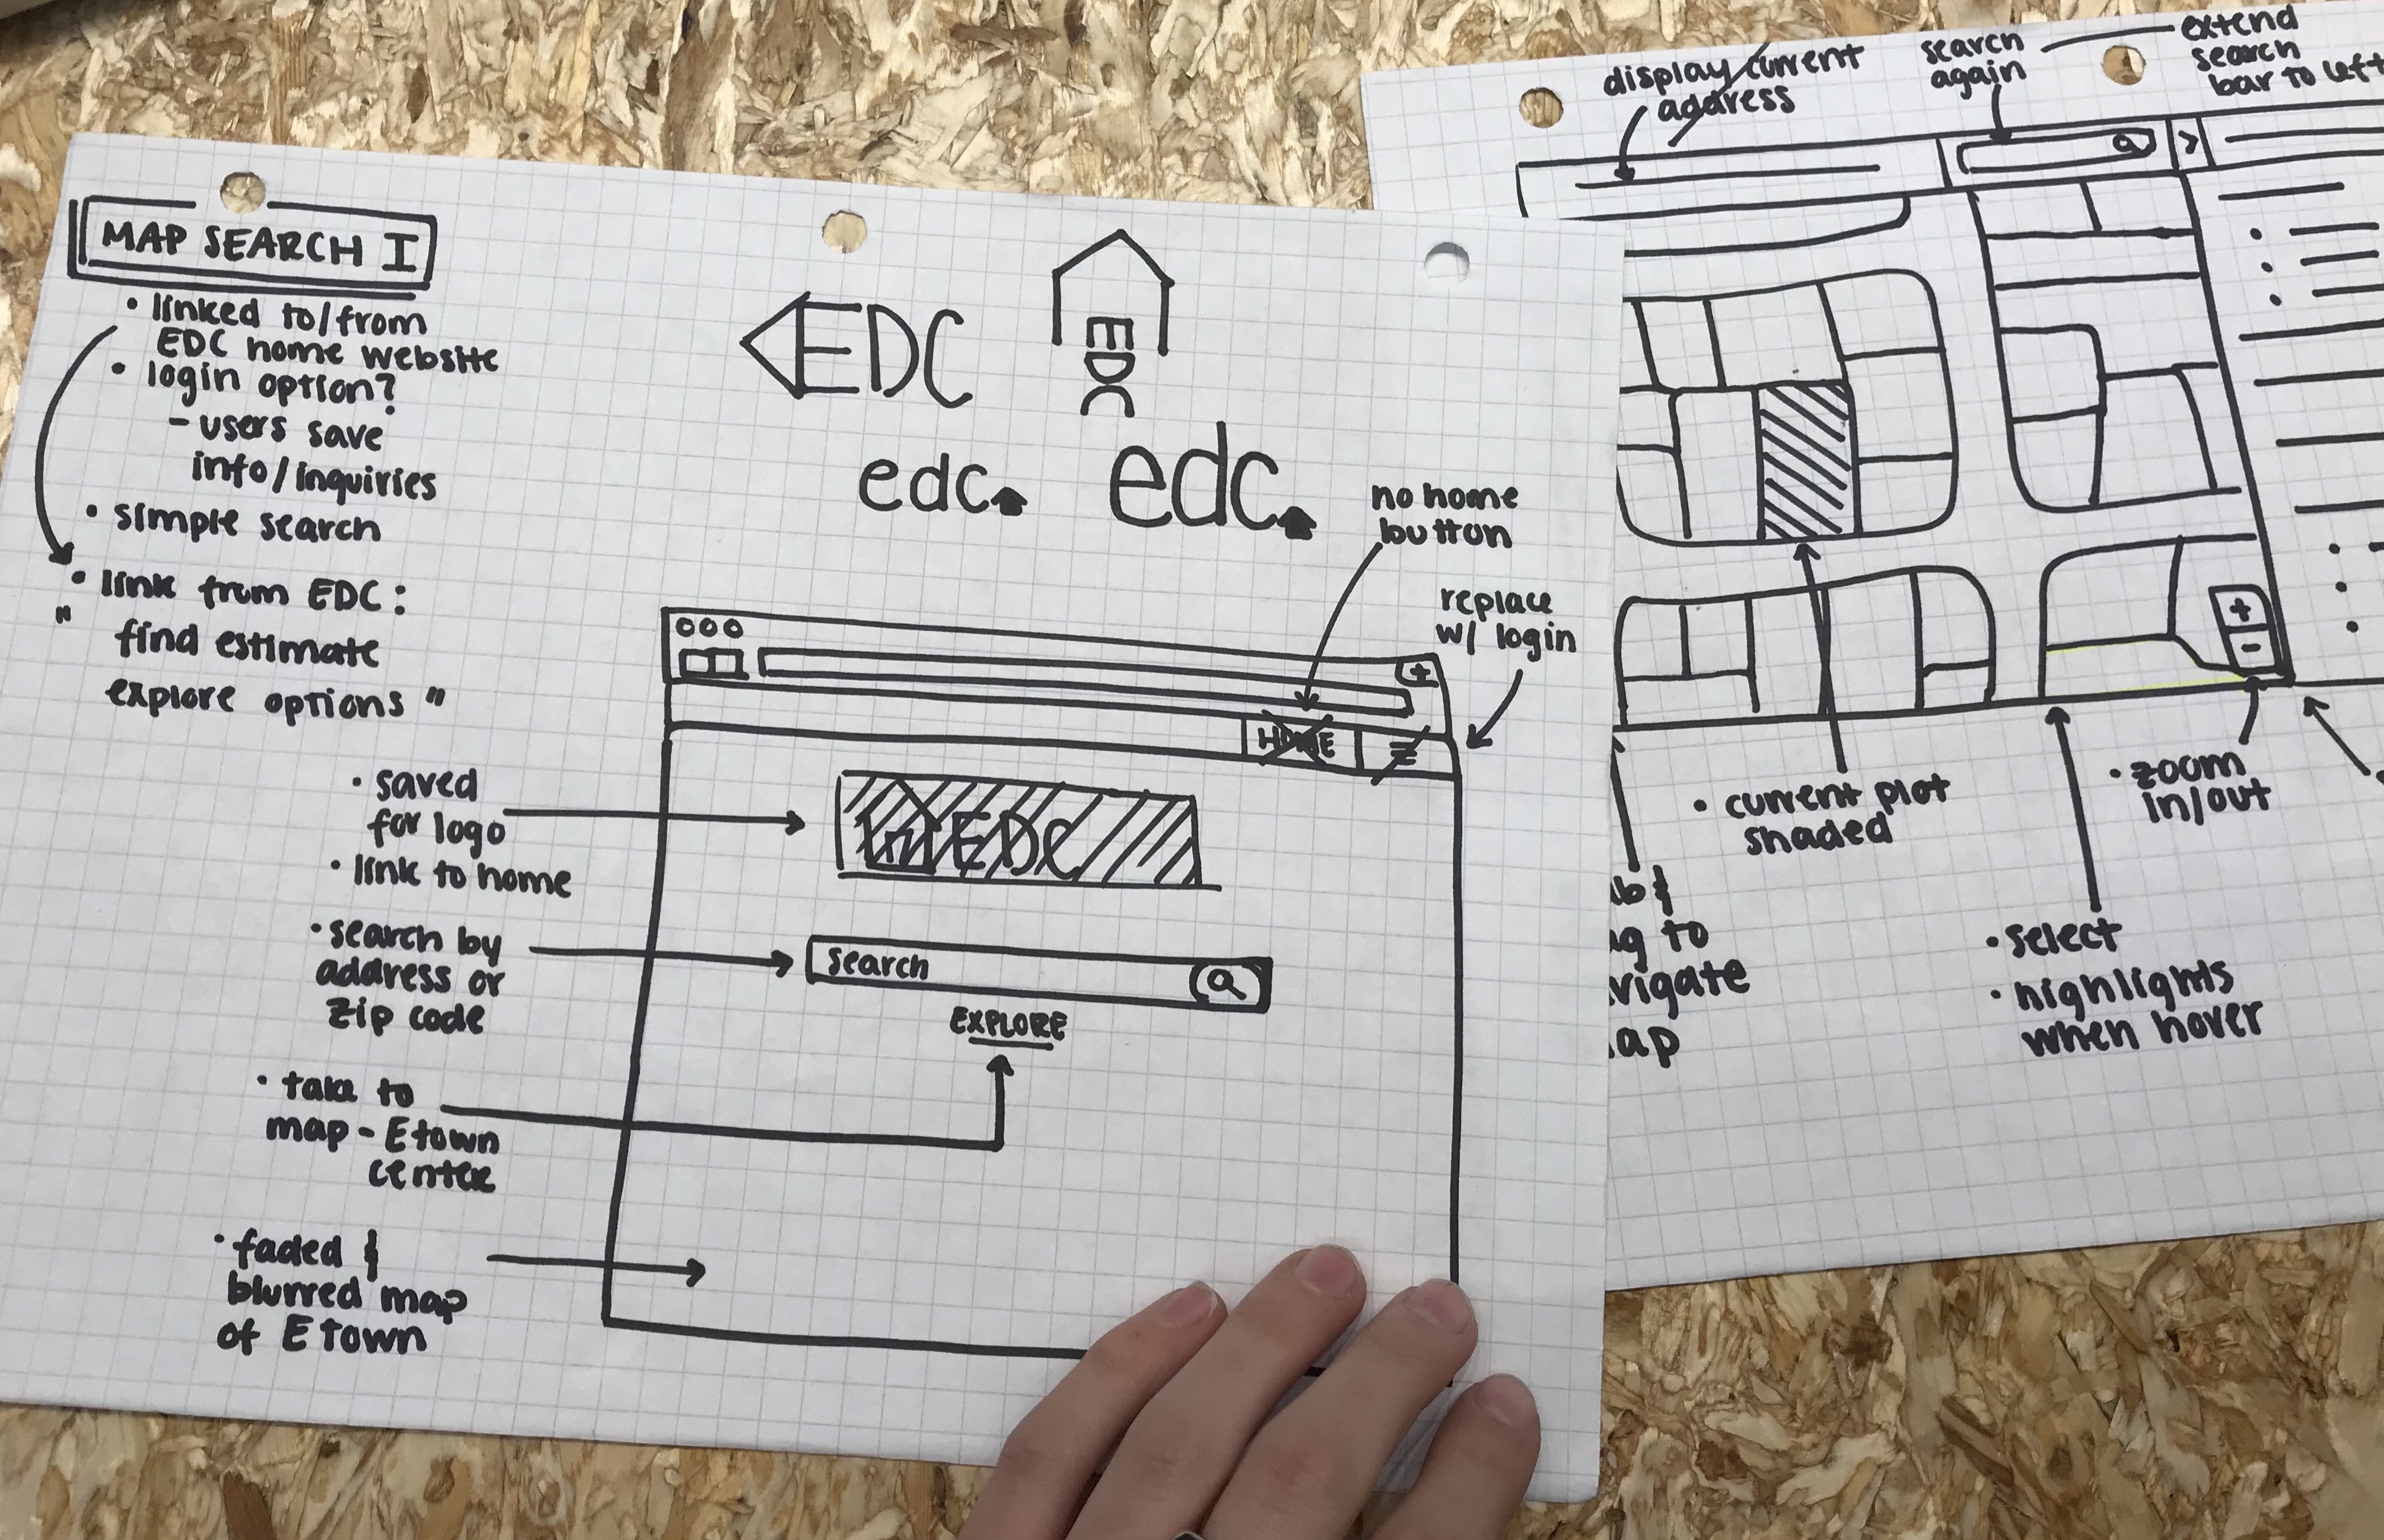 MAP SEARCH I
• linked to/from
EDC home website
• login option?
- users save
info/inquiries
• simple search
• link from EDC:
"find estimate
explore options"
EDC
EDC
edc.
edc.
no home
button
replace
w/ login
HOME
• saved
for logo
• link to home
EDC
• search by
address or
zip code
search
EXPLORE
• take to
map - Etown
center
• faded &
blurred map
of Etown
display current
address
search
again
extend
search
bar to left
+
-
• current plot
shaded
• zoom
in/out
• select
• highlights
when hover
to